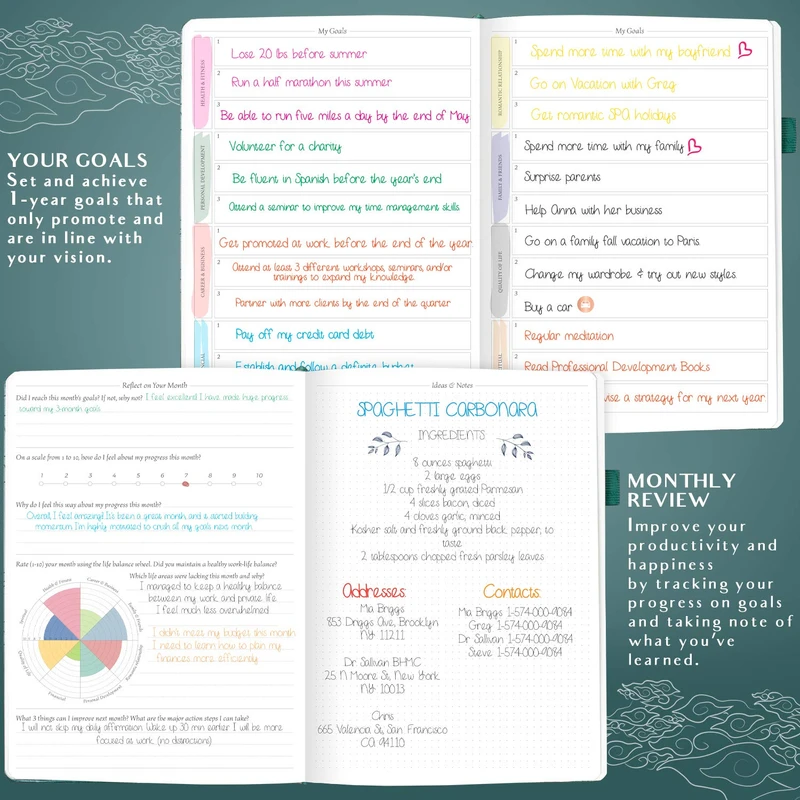 YOUR GOALS
Set and achieve
1-year goals that
only promote and
are in line with
your vision.
My Goals
HEALTH & FITNESS
1 Lose 20 lbs before summer
2 Run a half marathon this summer
3 Be able to run five miles a day by the end of May
PERSONAL DEVELOPMENT
1 Volunteer for a charity
2 Be fluent in Spanish before the year's end
3 Attend a seminar to improve my time management skills
CAREER & BUSINESS
1 Get promoted at work before the end of the year
2 Attend at least 3 different workshops, seminars, and/or
trainings to expand my knowledge
3 Partner with more clients by the end of the quarter
1 Pay off my credit card debt
2 Establish and follow a definite budget
My Goals
ROMANTIC RELATIONSHIP
1 Spend more time with my boyfriend
2 Go on Vacation with Greg
3 Get romantic SPA holidays
FAMILY & FRIENDS
1 Spend more time with my family
2 Surprise parents
3 Help Anna with her business
QUALITY OF LIFE
1 Go on a family fall vacation to Paris
2 Change my wardrobe & try out new styles
3 Buy a car
1 Regular meditation
2 Read Professional Development Books
vise a strategy for my next year
Reflect on Your Month
Did I reach this month's goals? If not, why not? I feel excellent! I have made huge progress
toward my 3-month goals
On a scale from 1 to 10, how do I feel about my progress this month?
1 2 3 4 5 6 7 8 9 10
Why do I feel this way about my progress this month?
Overall, I feel amazing! It's been a great month, and I started building
momentum. I'm highly motivated to crush all my goals next month
Rate (1-10) your month using the life balance wheel. Did you maintain a healthy work-life balance?
Health & Fitness
Career & Business
Family & Friends
Romantic Relationship
Personal Development
Financial
Quality of Life
Spiritual
Which life areas were lacking this month and why?
I managed to keep a healthy balance
between my work and private life
I feel much less overwhelmed
I didn't meet my budget this month
I need to learn how to plan my
finances more efficiently
What 3 things can I improve next month? What are the major action steps I can take?
I will not skip my daily affirmation. Wake up 30 min earlier I will be more
focused at work (no distractions)
Ideas & Notes
SPAGHETTI CARBONARA
INGREDIENTS
8 ounces spaghetti
2 large eggs
1/2 cup freshly grated Parmesan
4 slices bacon, diced
4 cloves garlic, minced
Kosher salt and freshly ground black pepper, to
taste
2 tablespoons chopped fresh parsley leaves
Addresses:
Mia Briggs
853 Driggs Ave, Brooklyn
NY 11211
Dr Sallivan BHMC
25 N Moore St, New York
NY 10013
Chris
665 Valencia St, San Francisco
CA 94110
Contacts:
Mia Briggs 1-574-000-9084
Greg 1-574-000-9084
Dr Sallivan 1-574-000-9084
Steve 1-574-000-9084
MONTHLY
REVIEW
Improve your
productivity and
happiness
by tracking your
progress on goals
and taking note of
what you've
learned.